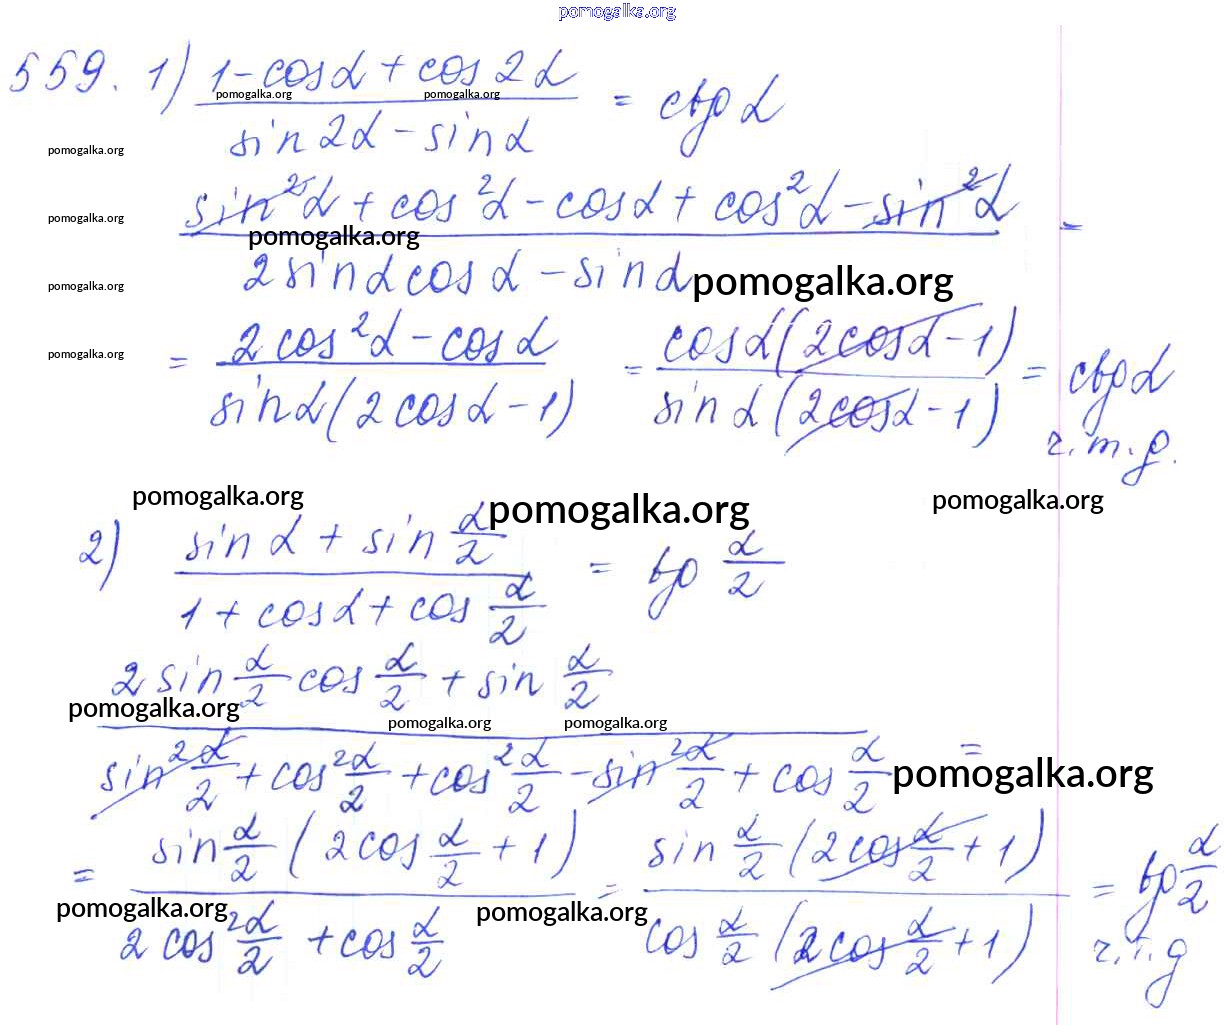 pomogalka.org
559. 1) (1 - cos α + cos 2α) / (sin 2α - sin α) = ctg α
pomogalka.org pomogalka.org
pomogalka.org
(sin²α + cos²α - cos α + cos²α - sin²α) / (2 sin α cos α - sin α) =
pomogalka.org
pomogalka.org
pomogalka.org
pomogalka.org
= (2 cos²α - cos α) / (sin α (2 cos α - 1)) = (cos α (2 cos α - 1)) / (sin α (2 cos α - 1)) = ctg α
pomogalka.org
ч.т.д.
pomogalka.org pomogalka.org pomogalka.org
2) (sin α + sin α/2) / (1 + cos α + cos α/2) = tg α/2
(2 sin α/2 cos α/2 + sin α/2) / (sin² α/2 + cos² α/2 + cos² α/2 - sin² α/2 + cos α/2) =
pomogalka.org pomogalka.org pomogalka.org
pomogalka.org
= (sin α/2 (2 cos α/2 + 1)) / (2 cos² α/2 + cos α/2) = (sin α/2 (2 cos α/2 + 1)) / (cos α/2 (2 cos α/2 + 1)) = tg α/2
pomogalka.org pomogalka.org
ч.т.д